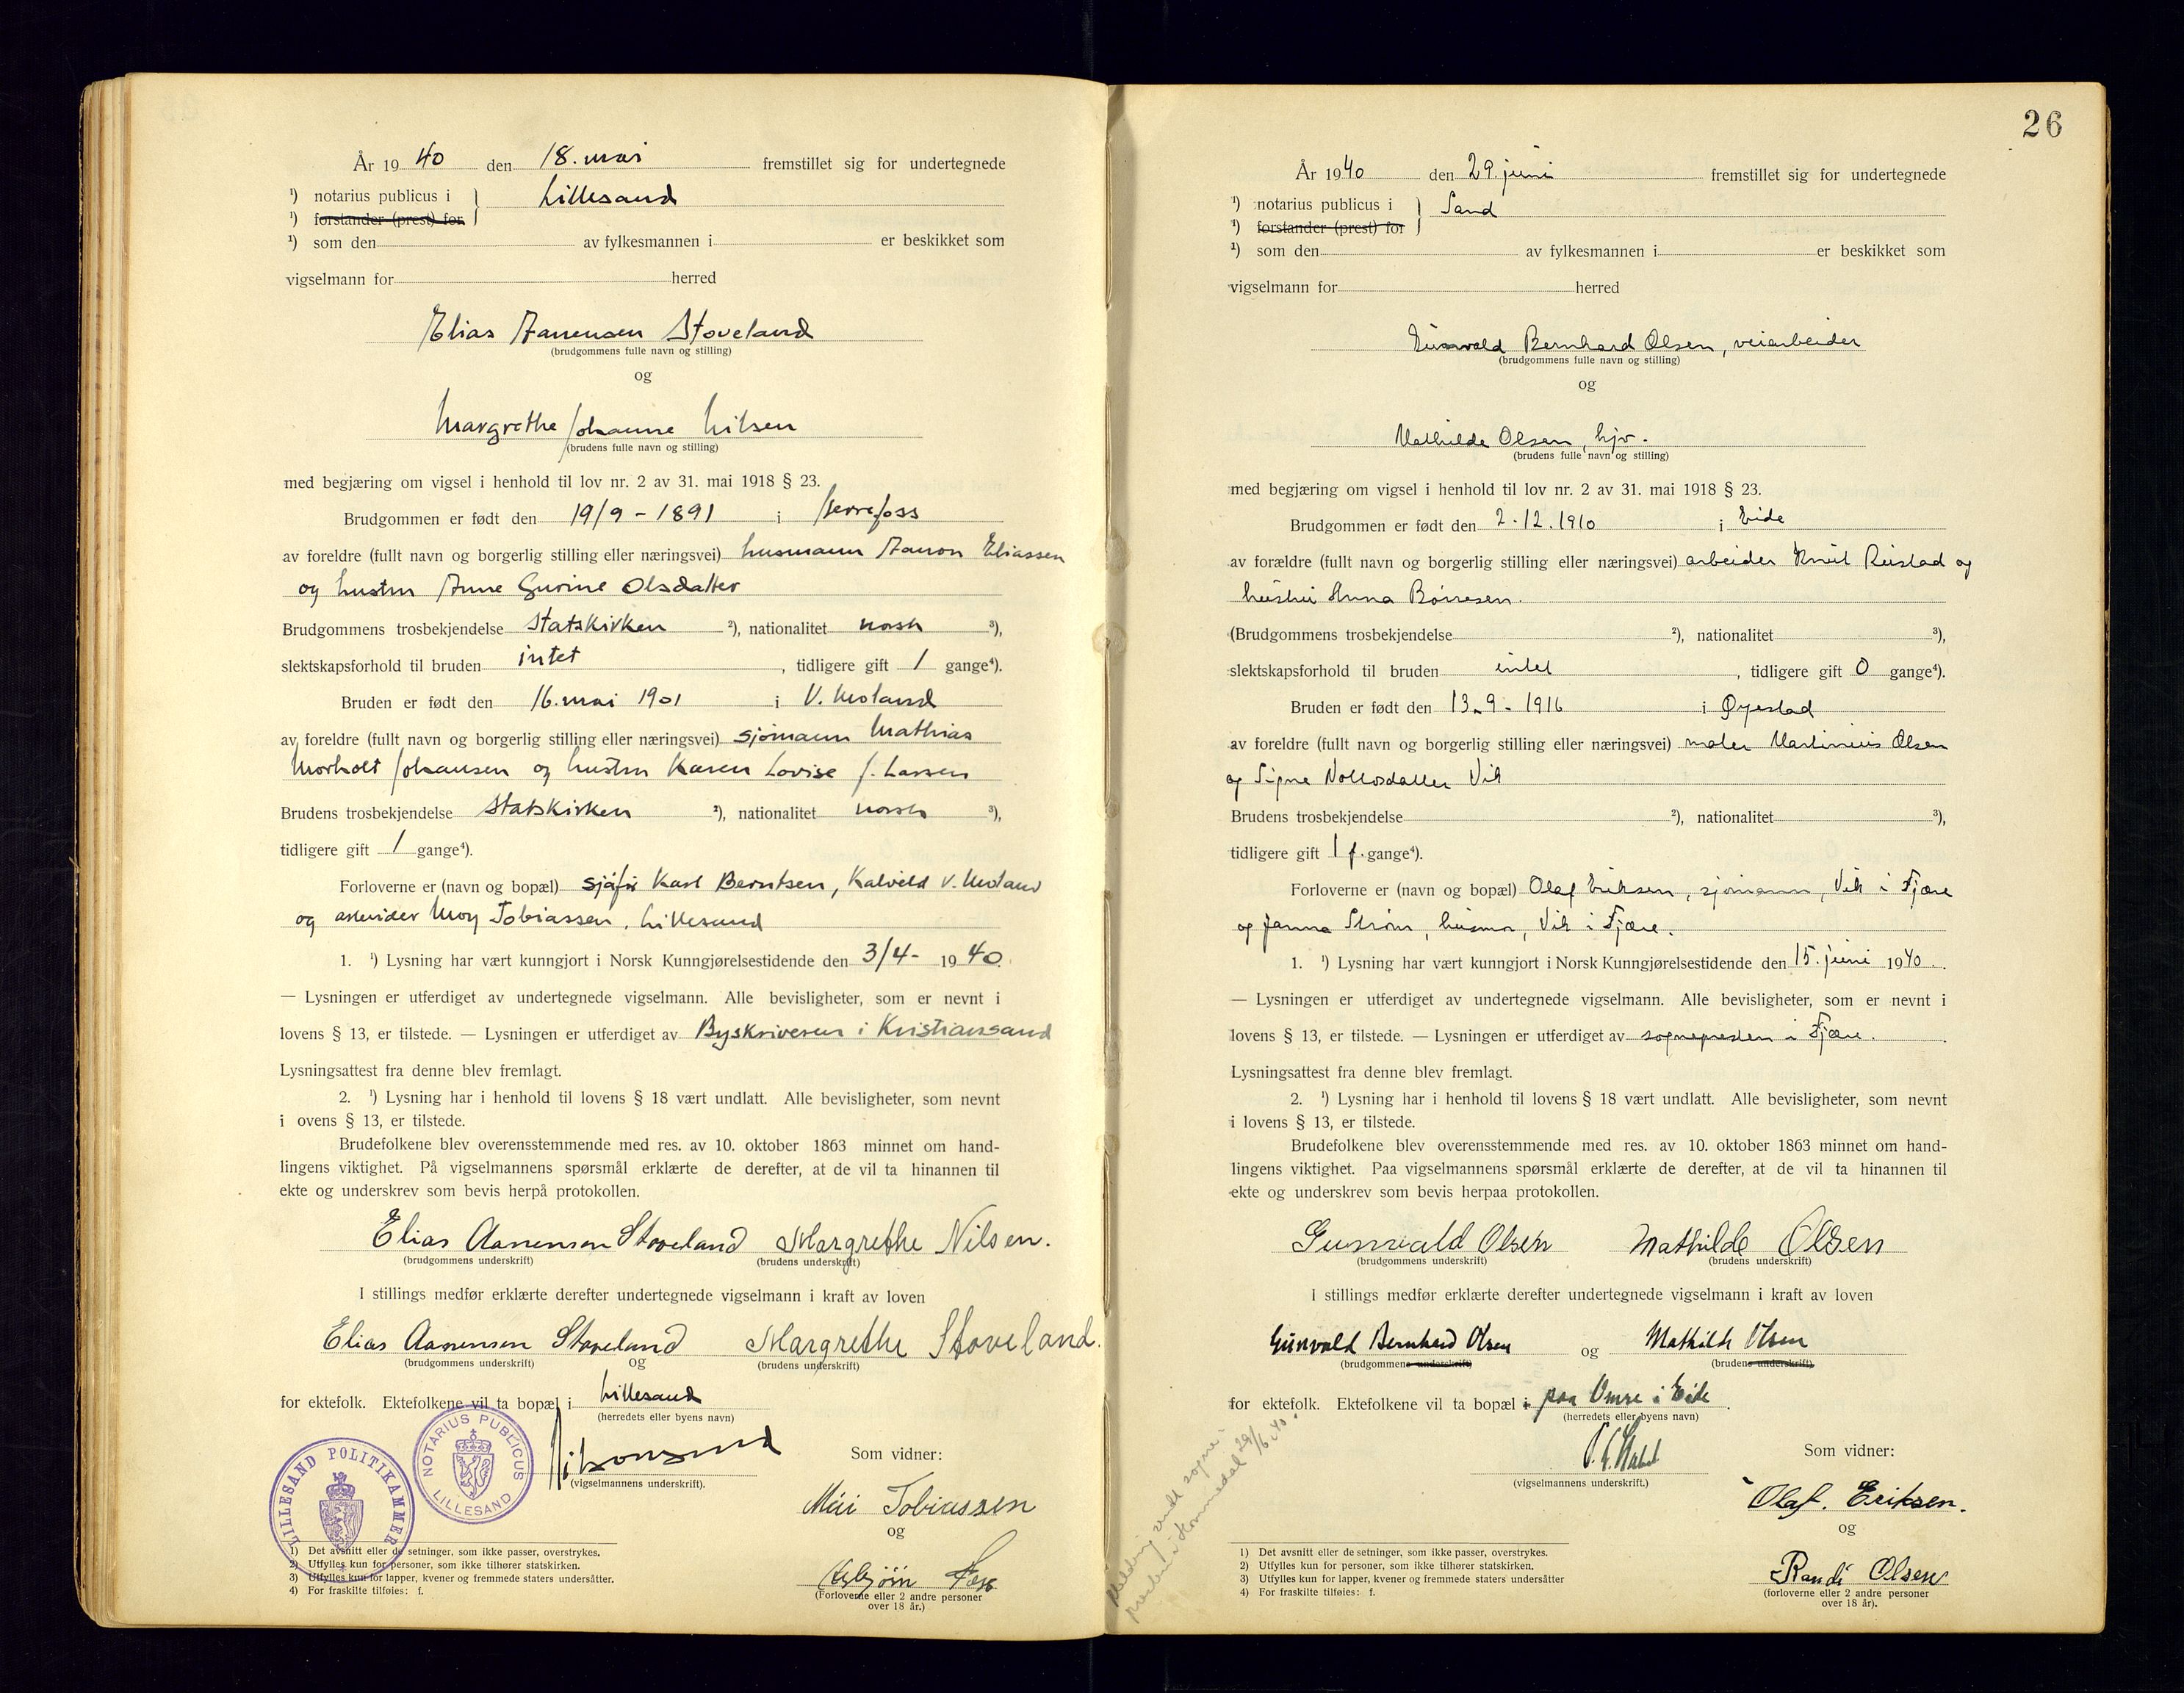 År 1940 den 18. mai fremstillet sig for undertegnede
¹) notarius publicus i } Lillesand
¹) forstander (prest) for
¹) som den av fylkesmannen i er beskikket som
vigselmann for herred
Elias Aanensen Stoveland
(brudgommens fulle navn og stilling)
og
Margrethe Johanne Nilsen
(brudens fulle navn og stilling)
med begjæring om vigsel i henhold til lov nr. 2 av 31. mai 1918 § 23.
Brudgommen er født den 19/9 - 1891 i Herrefoss
av foreldre (fullt navn og borgerlig stilling eller næringsvei) husmann Aanon Eliassen
og hustru Anne Gurine Olsdatter
Brudgommens trosbekjendelse Statskirken ²), nationalitet norsk ³),
slektskapsforhold til bruden intet , tidligere gift 1 gange⁴).
Bruden er født den 16. mai 1901 i V. Moland
av foreldre (fullt navn og borgerlig stilling eller næringsvei) sjömann Mathias
Morholt Johansen og hustru Karen Lovise f. Larsen
Brudens trosbekjendelse Statskirken ²), nationalitet norsk ³),
tidligere gift 1 gange⁴).
Forloverne er (navn og bopæl) sjåfør Karl Berntsen, Kalveld V. Moland
og arbeider Moy Tobiassen, Lillesand
1. ¹) Lysning har vært kunngjort i Norsk Kunngjørelsestidende den 3/4- 1940.
— Lysningen er utferdiget av undertegnede vigselmann. Alle bevisligheter, som er nevnt i
lovens § 13, er tilstede. — Lysningen er utferdiget av Byskriveren i Kristiansand
Lysningsattest fra denne blev fremlagt.
2. ¹) Lysning har i henhold til lovens § 18 vært undlatt. Alle bevisligheter, som nevnt
i ovens § 13, er tilstede.
Brudefolkene blev overensstemmende med res. av 10. oktober 1863 minnet om hand-
lingens viktighet. På vigselmannens spørsmål erklærte de derefter, at de vil ta hinannen til
ekte og underskrev som bevis herpå protokollen.
Elias Aanensen Stoveland Margrethe Nilsen.
(brudgommens underskrift) (brudens underskrift)
I stillings medfør erklærte derefter undertegnede vigselmann i kraft av loven
Elias Aanensen Stoveland Margrethe Stoveland.
(brudgommens underskrift) og (brudens underskrift)
for ektefolk. Ektefolkene vil ta bopæl i Lillesand
(herredets eller byens navn)
NOTARIUS PUBLICUS LILLESAND
LILLESAND POLITIKAMMER
(vigselmannens underskrift).
Som vidner:
Tobiassen
og
Asbjörn Foss
(Forloverne eller 2 andre personer
over 18 år.)
1) Det avsnitt eller de setninger, som ikke passer, overstrykes.
2) Utfylles kun for personer, som ikke tilhører statskirken.
3) Utfylles kun for lapper, kvener og fremmede staters undersåtter.
4) For fraskilte tilføies: f.
26
År 1940 den 29. juni fremstillet sig for undertegnede
¹) notarius publicus i } Sand
¹) forstander (prest) for
¹) som den av fylkesmannen i er beskikket som
vigselmann for herred
Gunvald Bernhard Olsen, veiarbeider
(brudgommens fulle navn og stilling)
og
Mathilde Olsen, hjv.
(brudens fulle navn og stilling)
med begjæring om vigsel i henhold til lov nr. 2 av 31. mai 1918 § 23.
Brudgommen er født den 2.12.1910 i Eide
av forældre (fullt navn og borgerlig stilling eller næringsvei) arbeider Knut Reistad og
hustru Anna Børresen.
(Brudgommens trosbekjendelse ²), nationalitet ³),
slektskapsforhold til bruden intet , tidligere gift 0 gange⁴).
Bruden er født den 13.9.1916 i Øyestad
av foreldre (fullt navn og borgerlig stilling eller næringsvei) maler Martinius Olsen
og Signe Nollosdatter Vik
Brudens trosbekjendelse ²), nationalitet ³),
tidligere gift 1 f. gange⁴).
Forloverne er (navn og bopæl) Olaf Eriksen, sjømann, Vik i Fjære
og Janna Strøm, husmor, Vik i Fjære.
1. ¹) Lysning har vært kunngjort i Norsk Kunngjørelsestidende den 15. juni 1940.
— Lysningen er utferdiget av undertegnede vigselmann. Alle bevisligheter, som er nevnt i
lovens § 13, er tilstede. — Lysningen er utferdiget av sognepresten i Fjære.
Lysningsattest fra denne blev fremlagt.
2. ¹) Lysning har i henhold til lovens § 18 vært undlatt. Alle bevisligheter, som nevnt
i lovens § 13, er tilstede.
Brudefolkene blev overensstemmende med res. av 10. oktober 1863 minnet om hand-
lingens viktighet. Paa vigselmannens spørsmål erklærte de derefter, at de vil ta hinannen til
ekte og underskrev som bevis herpaa protokollen.
Gunvald Olsen Mathilde Olsen
(brudgommens underskrift) (brudens underskrift)
I stillings medfør erklærte derefter undertegnede vigselmann i kraft av loven
Gunvald Bernhard Olsen og Mathilde Olsen
(brudgommens underskrift) (brudens underskrift)
for ektefolk. Ektefolkene vil ta bopæl i paa Omre i Eide.
(herredets eller byens navn)
(vigselmannens underskrift.)
Melding sendt sogne-
presten i Hommedal 29/6.40.
Som vidner:
Olaf. Eriksen.
og
Randi Olsen
(forloverne eller 2 andre personer
over 18 år).
1) Det avsnitt eller de setninger, som ikke passer, overstrykes.
2) Utfylles kun for personer, som ikke tilhører statskirken.
3) Utfylles kun for lapper, kvener og fremmede staters undersåtter
4) For fraskilte tilføies: f.